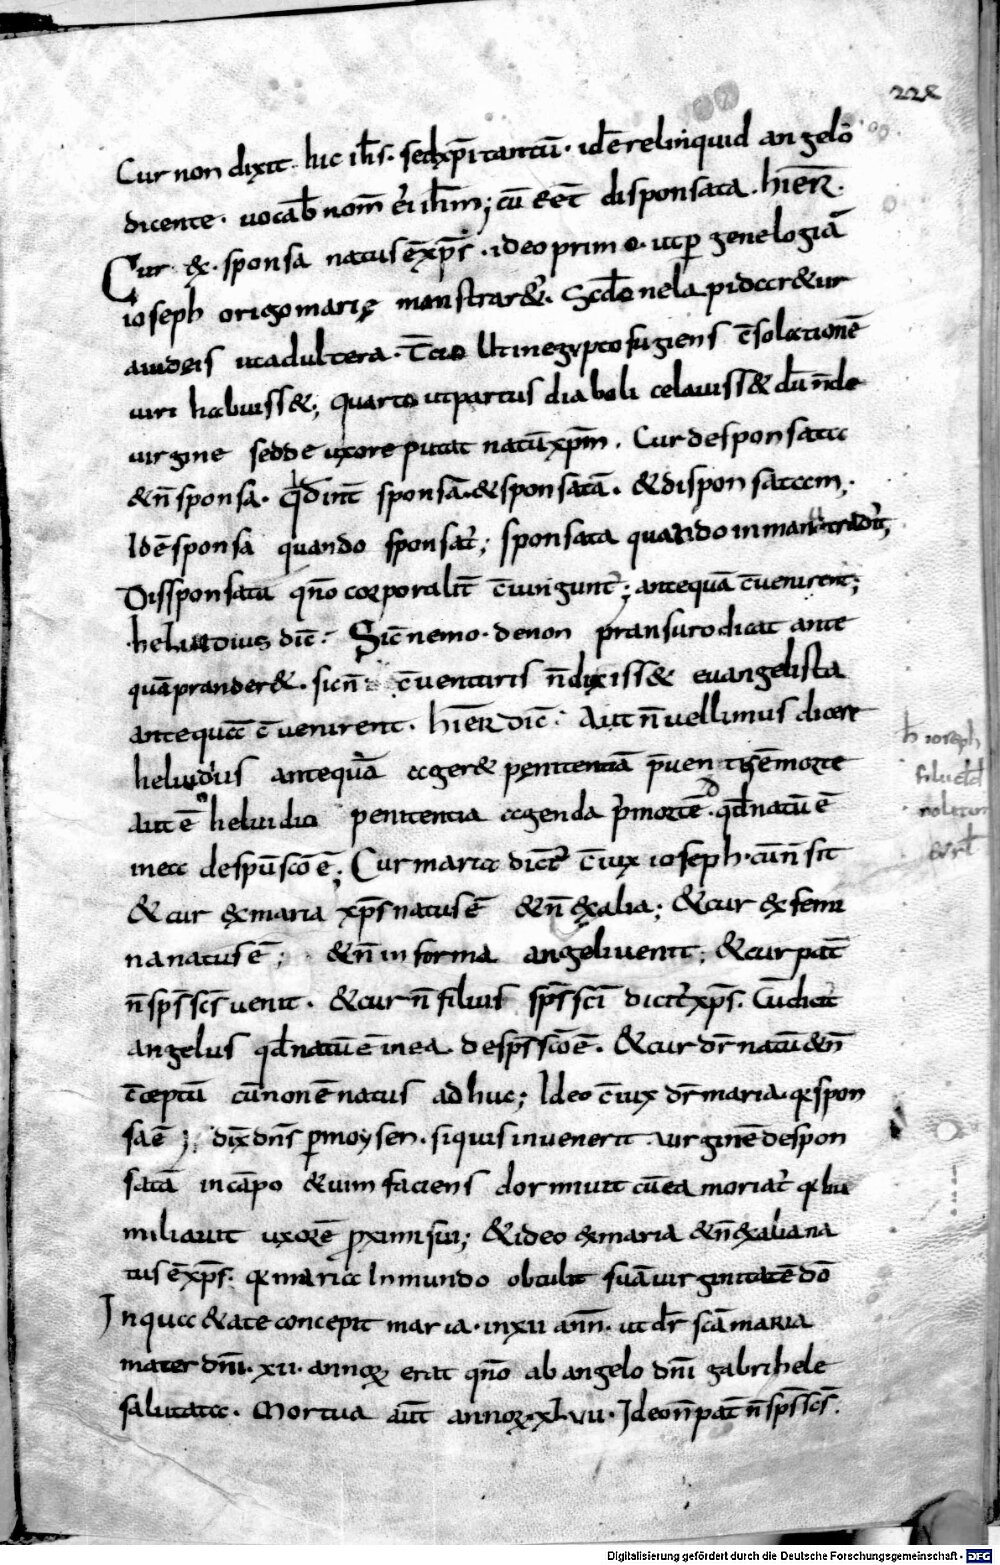 22&
Cur non dixit hic ih̅s· sed xp̅i tantu̅· id e̅ relinquid angelo
dicente· uocab̅ nom̅ ei̅ ih̅m; cu̅ e̅e̅t disponsata· hier̅·
Cur &· sponsa natus e̅ xp̅s· ideo primo· ut per genelogia̅
ioseph origo marię monstrar&· Scd̅o ne lapidar&ur
a iudeis ut adultera· T̅cio Ut in egypto fugiens c̅solationē
uiri habuiss&; quarto ut partus diaboli celauiss& du̅ n̅ de
uirgine sed de uxore putat natu̅ xp̅m· Cur desponsata
& n̅ sponsa· Qd̅ int̅ sponsa̅· & sponsata̅· & disponsatam·
Id e̅ sponsa quando sponsat̅; sponsata quando in manu tradit̅;
Dissponsata qn̅o corporalit̅ c̅iungunt̅; antequa̅ c̅uenirent;
heluidius dic̅· Sic̅ nemo· de non pransuro dicat ante
qua̅ prander&· sic n̅ c̅uenturis n̅ dixiss& euangelista
antequa̅ c̅uenirent· hier̅ dic̅· Aut n̅ uellimus dicere
heluidius antequa̅ ager& penitentia̅ p̅uentus e̅ morte
aut e̅ heluidio penitentia agenda p̅ morte̅· qd̅ natu̅ e̅
in ea de spu̅ sc̅o e̅; Cur maria dict̅ c̅iux ioseph· cu̅ n̅ sit
& cur ex maria xp̅s natus e̅ & n̅ ex alia; & cur ex femi
na natus e̅; & n̅ in forma angeli uenit; & cur pat̅
n̅ sp̅s sc̅s uenit· & cur n̅ filius sp̅s sc̅i dicit̅ xp̅s· Cu̅ dicit
angelus qd̅ natu̅ e̅ in ea de sp̅s sc̅o e̅· & cur dr̅ natu̅ & n̅
c̅ceptu̅ cu̅ non e̅ natus adhuc; Ideo c̅iux dr̅ maria· q̅ spon
sa e̅; dix̅ dn̅s p̱ moysen· si quis inuenerit uirgine̅ despon
sata̅ in ca̅po & uim faciens dormiuit cu̅ ea moriat̅ q̅ hu
miliauit uxore̅ proximi sui; & ideo ex maria & n̅ ex alia na
tus e̅ xp̅s· q̅ maria In mundo obtulit sua̅ uirginitate̅ do̅
In qua &ate concepit maria· in xii ann̅· ut dr̅ sc̅a maria
mater dn̅i· xii· annoꝝ erat qn̅o ab angelo dn̅i gabrihele
salutata· Mortua aut̅ annoꝝ· xlvii· Ideo n̅ pat̅ n̅ sp̅s sc̅s·
h̅ ioseph
Digitalisierung gefördert durch die Deutsche Forschungsgemeinschaft - DFG